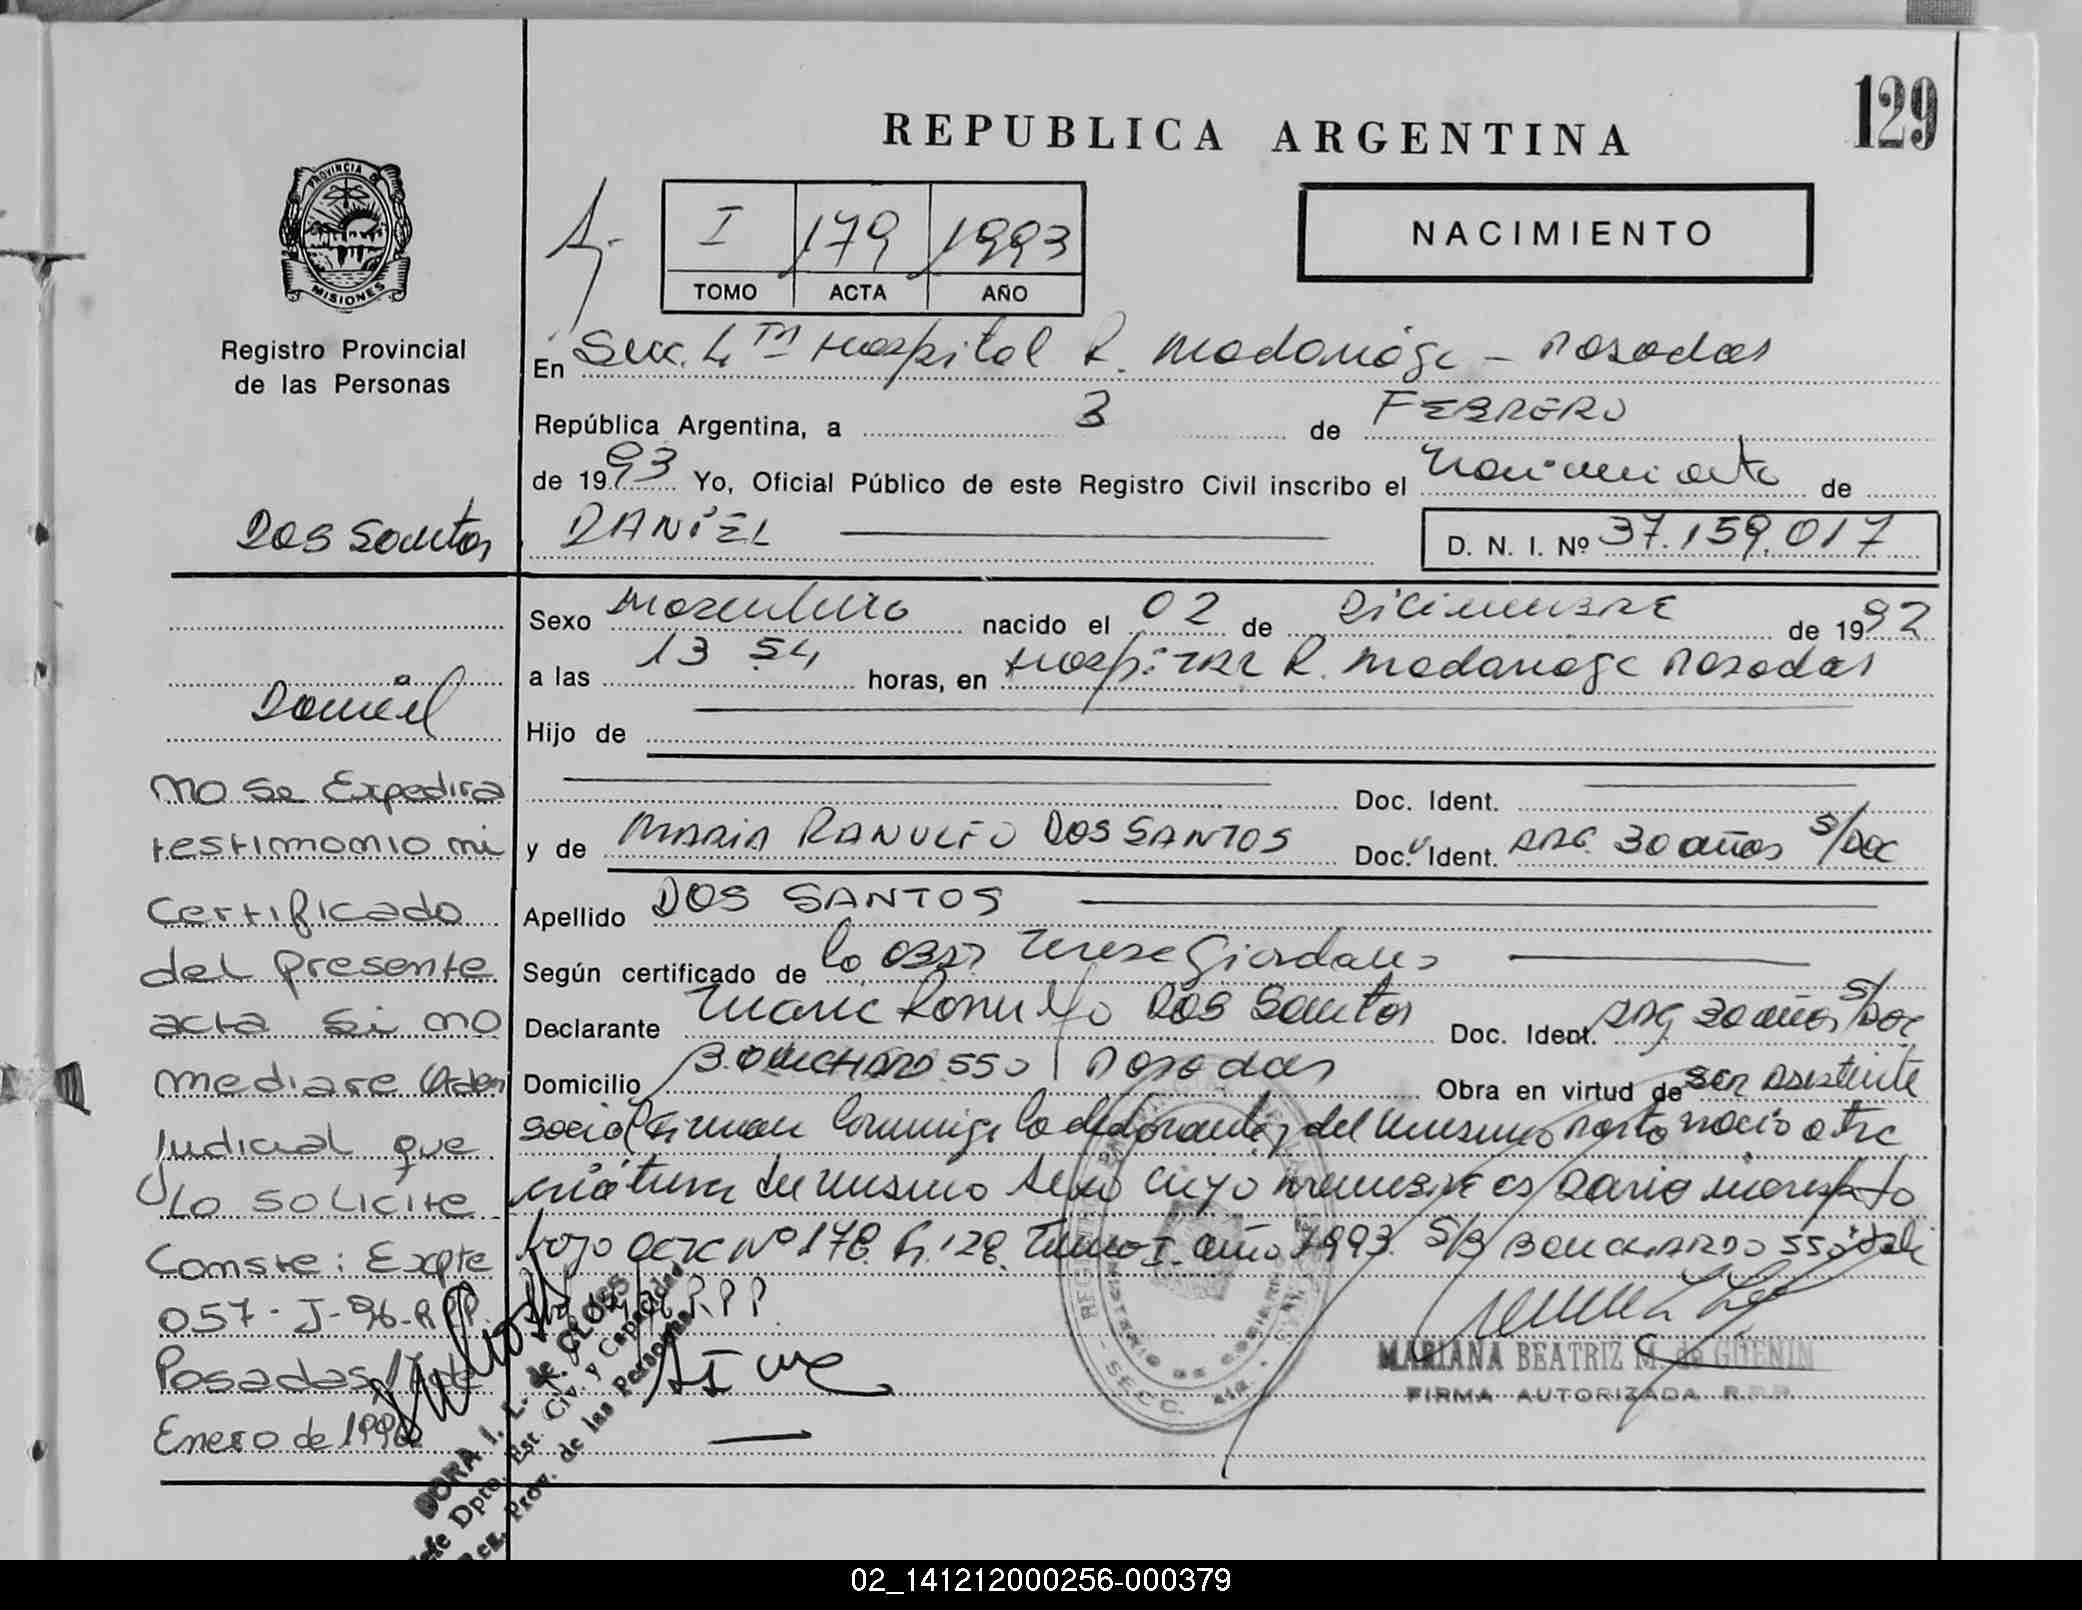 129
REPUBLICA ARGENTINA
PROVINCIA DE
MISIONES
Registro Provincial
de las Personas
I 179 1993
TOMO ACTA AÑO
NACIMIENTO
En Secc. 4ta Hospital R. Madariaga - Posadas
República Argentina, a 3 de FEBRERO
de 1993 Yo, Oficial Público de este Registro Civil inscribo el nacimiento de
DANIEL
D. N. I. Nº 37.159.017
Dos Santos
Daniel
Sexo masculino nacido el 02 de Diciembre de 1992
a las 13 54 horas, en Hospital R. Madariaga Posadas
Hijo de
Doc. Ident.
y de MARIA RANULFO DOS SANTOS Doc. Ident. ARG. 30 años S/Doc
Apellido DOS SANTOS
Según certificado de la Obst Terese Giordano
Declarante Maria Ranulfo Dos Santos Doc. Ident. ARG 30 años S/Doc
Domicilio BOUCHARD 550 Posadas Obra en virtud de ser asistente
social firman conmigo la declarante, del mismo parto nacio otra
criatura del mismo sexo cuyo nombre es Dario inscripto
bajo acta Nº 178. Fº 128. Tomo I. año 1993. S/B BOUCHARDO 550 vale
R.P.P.
MARIANA BEATRIZ M. de GUENIN
FIRMA AUTORIZADA R.P.P.
no se Expedira
testimonio ni
Certificado
del presente
acta si no
mediare Orden
Judicial que
lo solicite
Conste: Expte
057-J-96-RPP.
Posadas,
Enero de 1996
DORA I. L. de CLOSS
Jefe Dpto. Est. Civ. y Capacidad
Reg. Prov. de las Personas
02_141212000256-000379